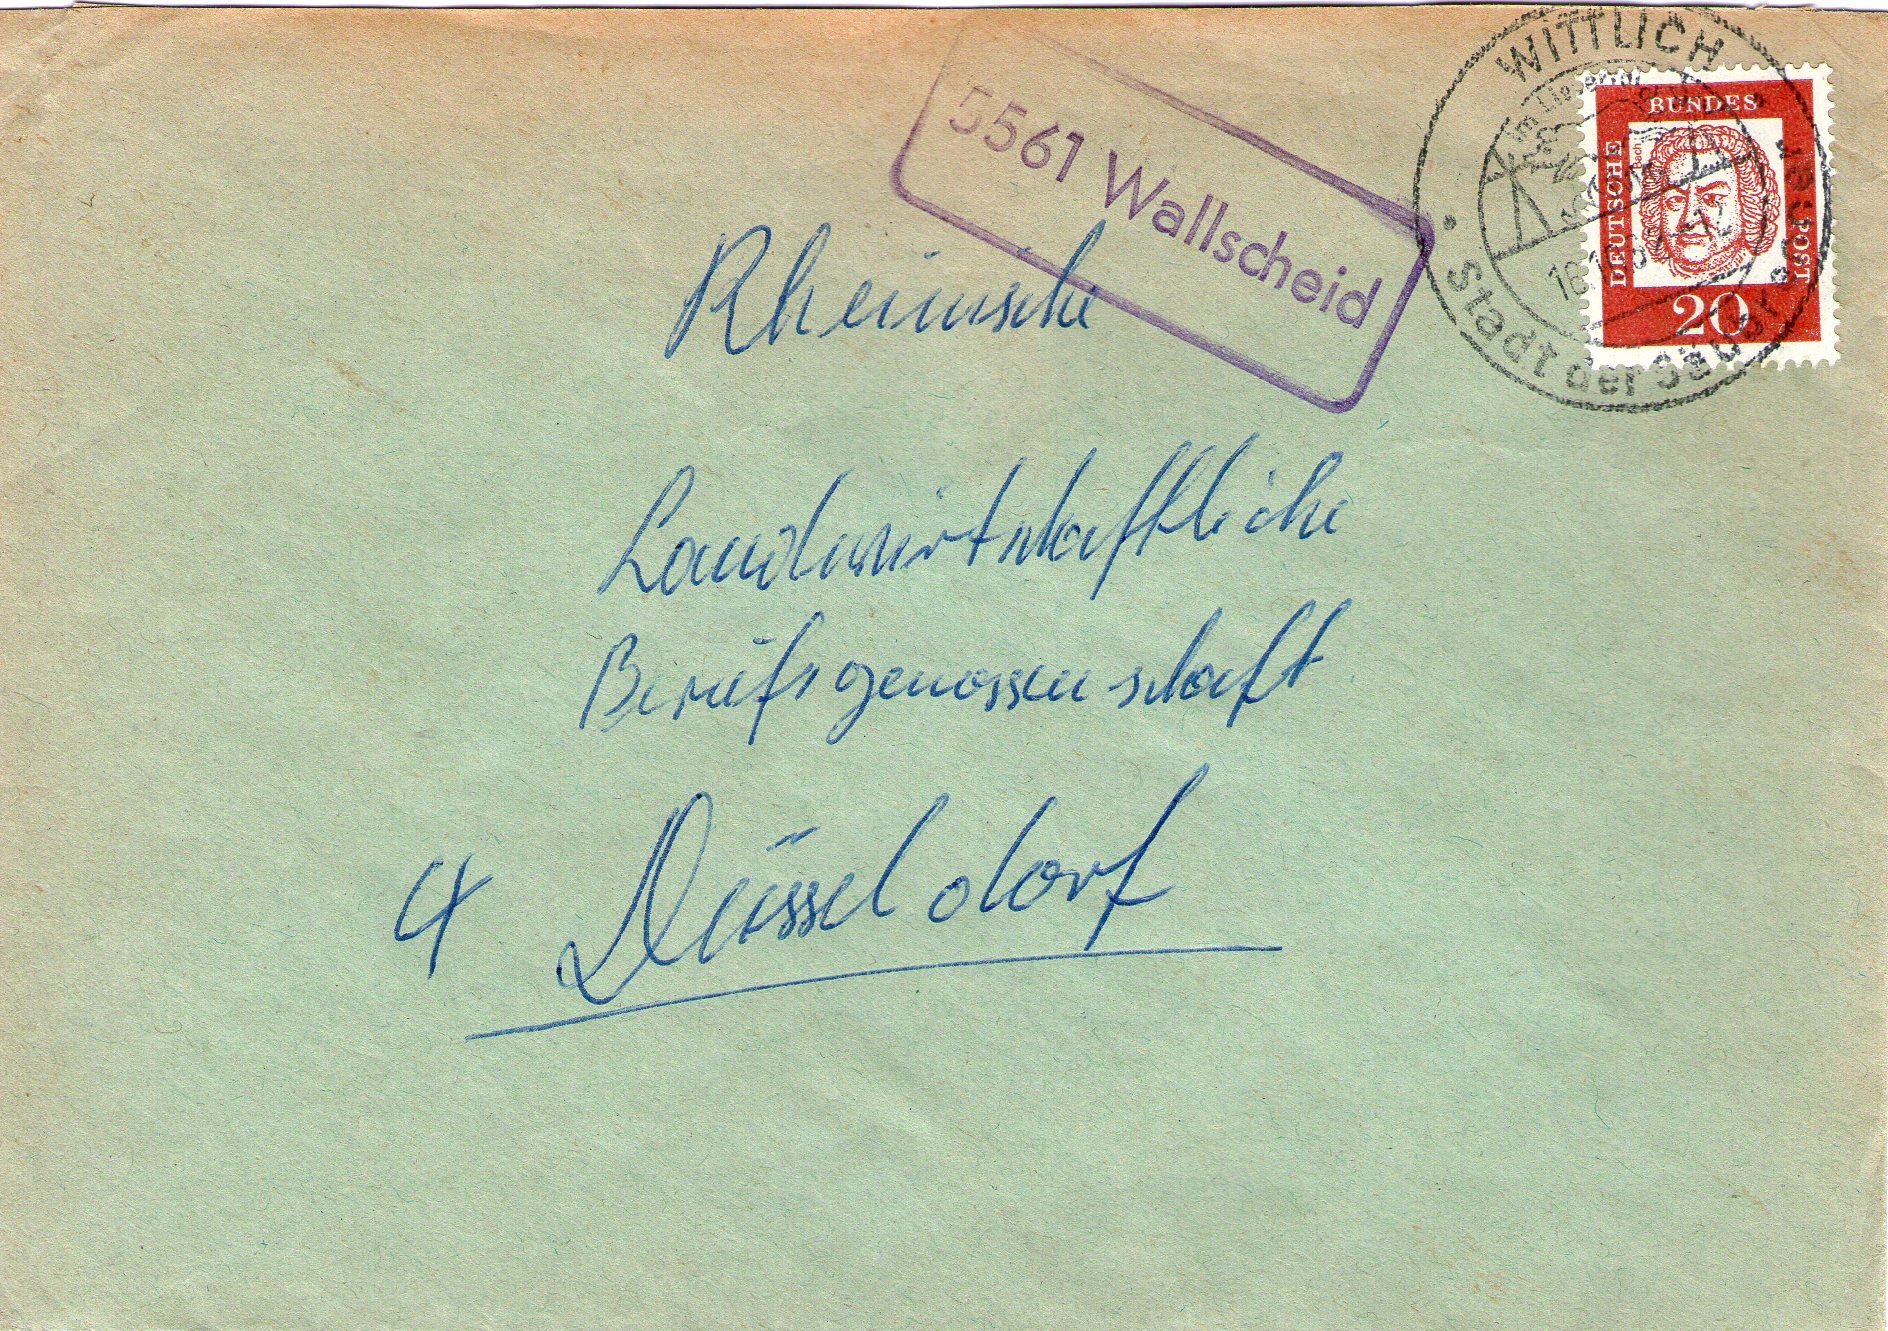 5561 Wallscheid
WITTLICH
Stadt der Säubrenner
DEUTSCHE
BUNDES
POST
20
Rheinische
Landwirtschaftliche
Berufsgenossenschaft
4 Düsseldorf